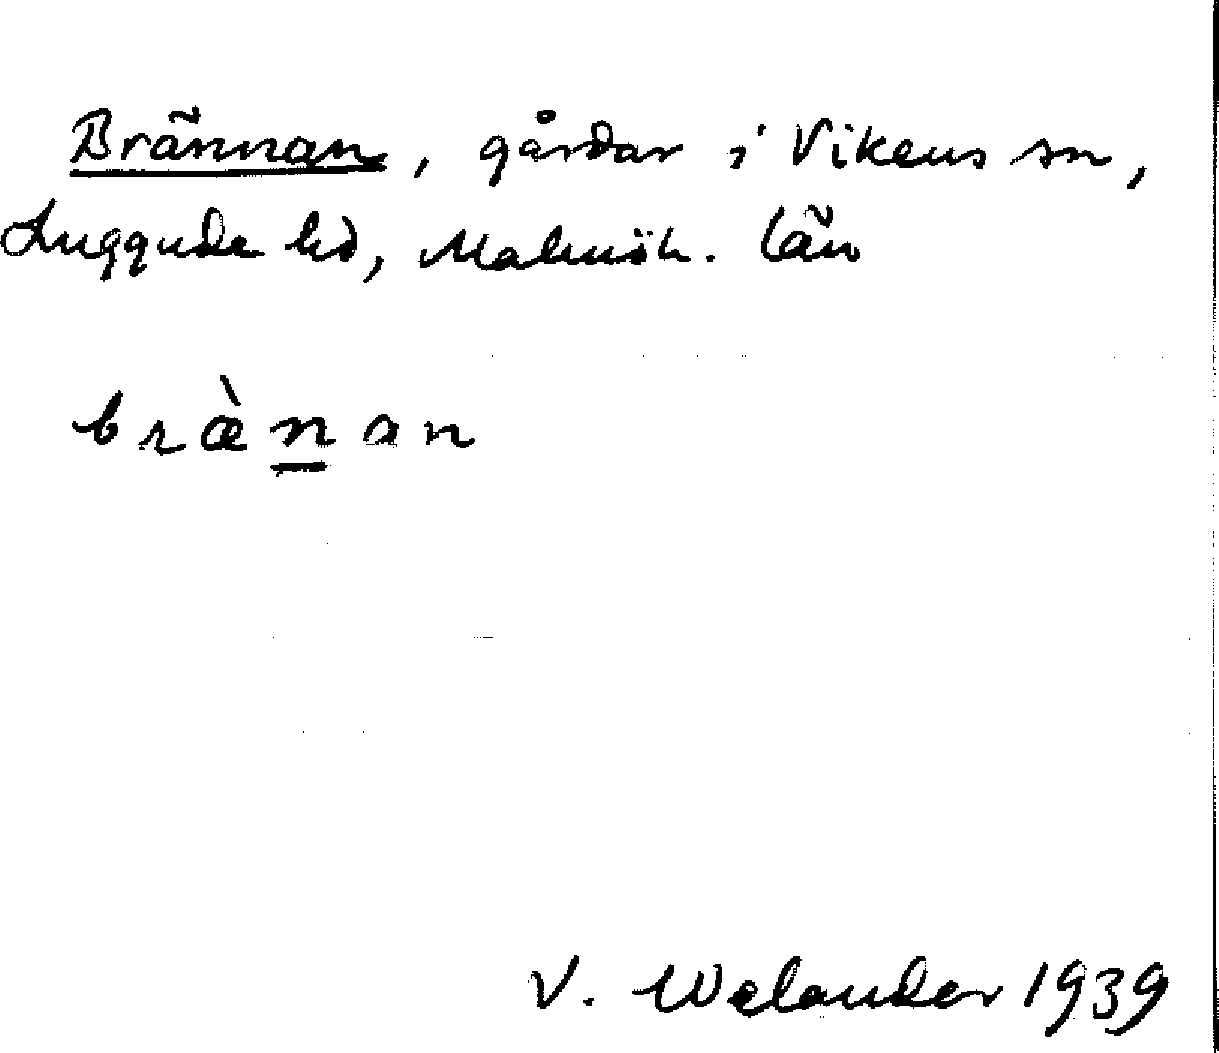 Brännan, gårdar i Vikens sn,
Luggude hd, Malmöh. län
bræ̀n̲an
V. Welander 1939